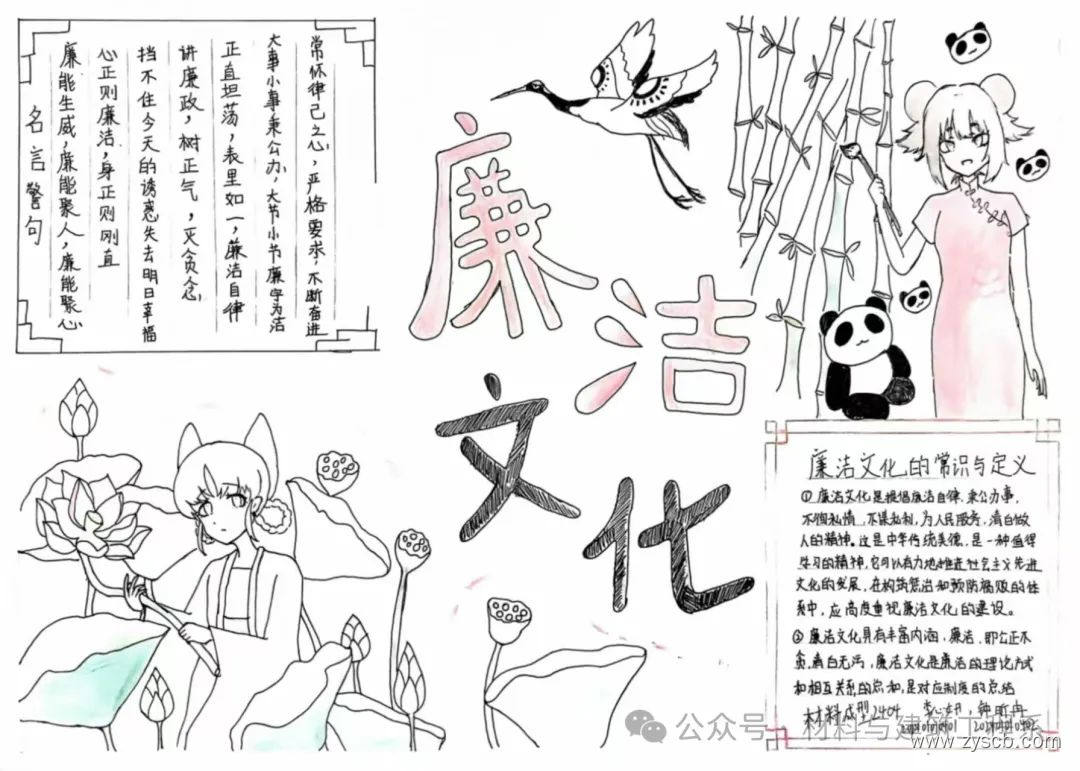 廉洁
文化
常怀律己之心，严格要求，不断奋进
大事小事秉公办，大节小节廉字为洁
正直坦荡，表里如一，廉洁自律
讲廉政，树正气，灭贪念
挡不住今天的诱惑失去明日幸福
心正则廉洁，身正则刚直
廉能生威，廉能聚人，廉能聚心
名言警句
廉洁文化的常识与定义
①廉洁文化是提倡廉洁自律、秉公办事，
不徇私情，不谋私利，为人民服务，清白做
人的精神。这是中华传统美德，是一种值得
学习的精神，它可以有力地推进社会主义先进
文化的发展，在构筑惩治和预防腐败的体
系中，应高度重视廉洁文化的建设。
②廉洁文化具有丰富内涵，廉洁，即公正不
贪，清白无污，廉洁文化是廉洁的理论方式
和相互关系的总和，是对应制度的总结
材料成型2404 钟昕冉
公众号·材料与建筑工程系
www.zyscb.com